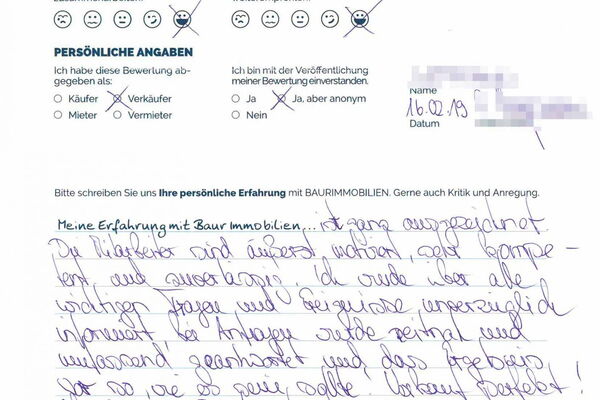 zusammenarbeiten? weiterempfehlen?
PERSÖNLICHE ANGABEN
Ich habe diese Bewertung ab- Ich bin mit der Veröffentlichung
gegeben als: meiner Bewertung einverstanden.
Name
Käufer Verkäufer Ja Ja, aber anonym 16.02.19
Mieter Vermieter Nein Datum
Bitte schreiben Sie uns Ihre persönliche Erfahrung mit BAURIMMOBILIEN. Gerne auch Kritik und Anregung.
Meine Erfahrung mit Baur Immobilien... ist ganz ausgezeichnet.
Die Mitarbeiter sind äußerst , sehr kompe-
tent und zuverlässig. Ich wurde über alle
wichtigen Fragen und Ereignisse unverzüglich
informiert. Bei Anfragen wurde zeitnah und
umfassend geantwortet und das Ergebnis
war so, wie es sein sollte. Verkauf perfekt!